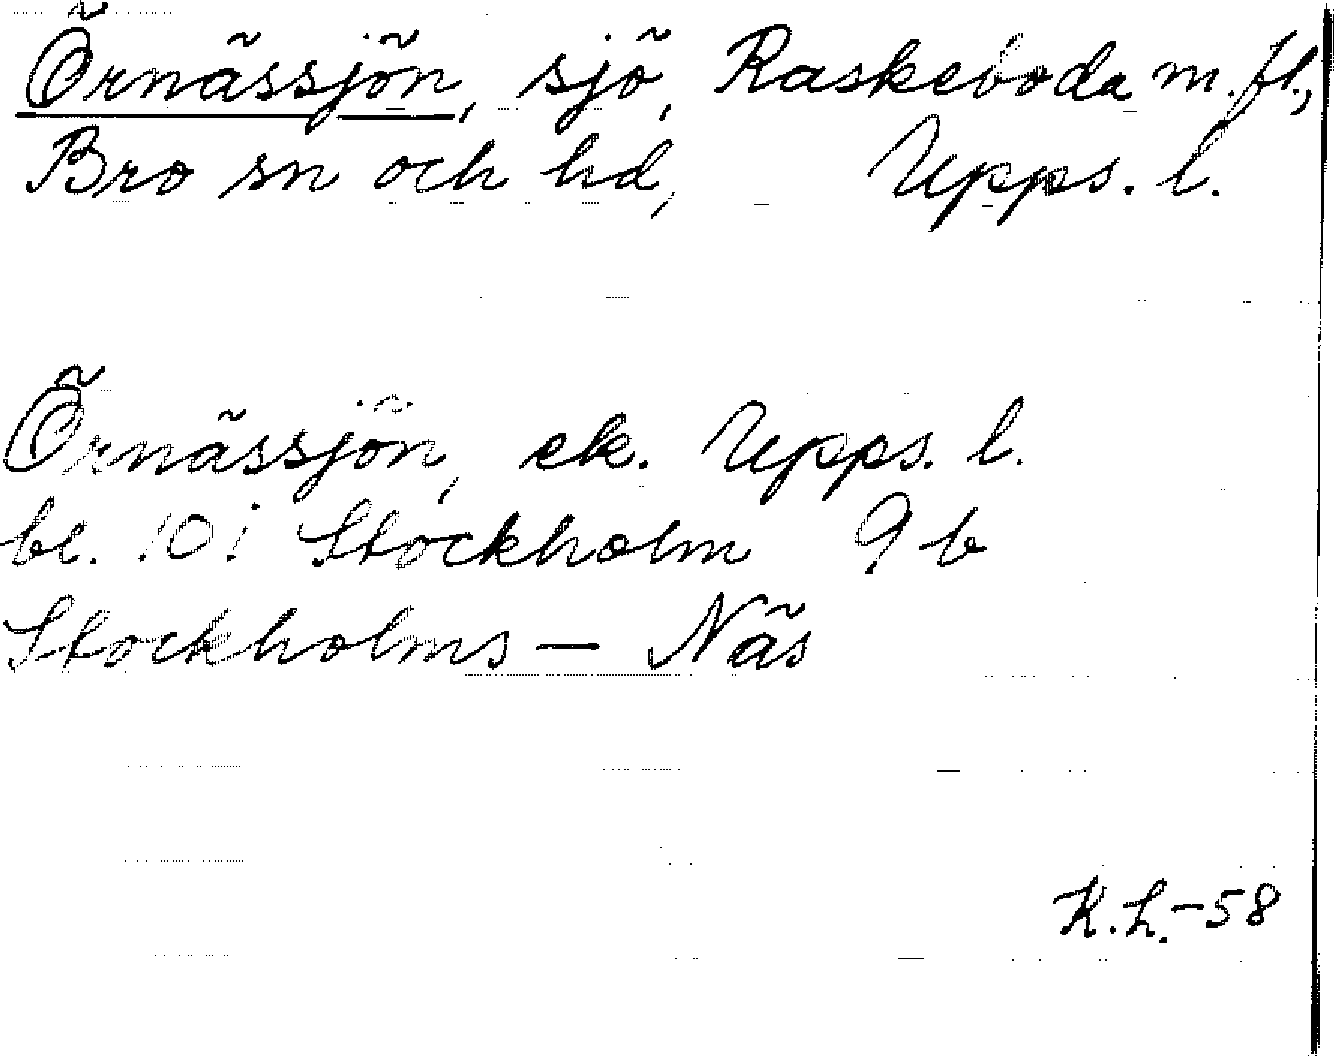 Örnässjön, sjö, Raskeboda m.fl.,
Bro sn och hd, Upps. l.
Örnässjön, ek. Upps. l.
bl. 101 Stockholm 9 b
Stockholms — Näs
K.L.-58